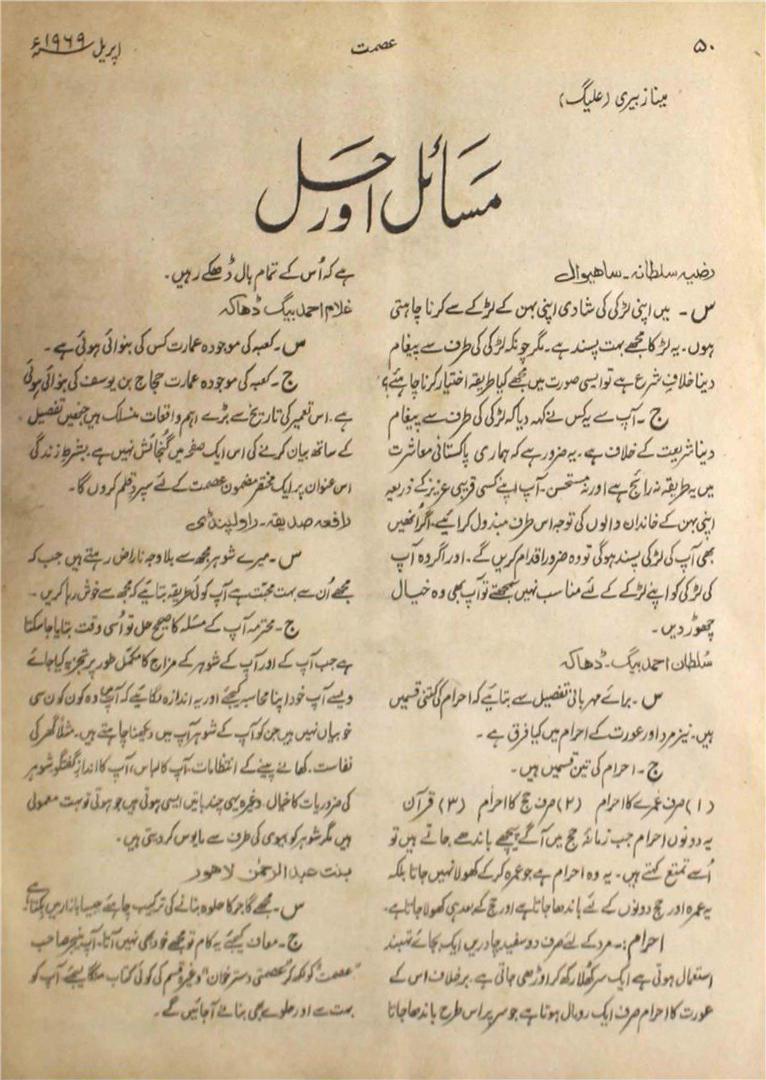 ۵۰
عصمت
اپریل ۱۹۶۹ء
مینا زبیری (علیگ)
مسائل اور حل
رضیہ سلطانہ۔ ساھیوال
س۔ میں اپنی لڑکی کی شادی اپنی بہن کے لڑکے سے کرنا چاہتی
ہوں۔ یہ لڑکا مجھے بہت پسند ہے۔ مگر چونکہ لڑکی کی طرف سے پیغام
دینا خلافِ شرع ہے تو ایسی صورت میں مجھے کیا طریقہ اختیار کرنا چاہئے؟
ج۔ آپ سے یہ کس نے کہہ دیا کہ لڑکی کی طرف سے پیغام
دینا شریعت کے خلاف ہے۔ یہ ضرور ہے کہ ہماری پاکستانی معاشرت
میں یہ طریقہ نہ رائج ہے اور نہ مستحسن۔ آپ اپنے کسی قریبی عزیز کے ذریعہ
اپنی بہن کے خاندان والوں کی توجہ اس طرف مبذول کرائیے، اگر اُنھیں
بھی آپ کی لڑکی پسند ہوگی تو وہ ضرور اقدام کریں گے۔ اور اگر وہ آپ
کی لڑکی کو اپنے لڑکے کے لئے مناسب نہیں سمجھتے تو آپ بھی وہ خیال
چھوڑ دیں۔
سُلطان احمد بیگ۔ ڈھاکہ
س۔ برائے مہربانی تفصیل سے بتائیے کہ احرام کی کتنی قسمیں
ہیں۔ نیز مرد اور عورت کے احرام میں کیا فرق ہے۔
ج۔ احرام کی تین قسمیں ہیں۔
(۱) صرف عمرے کا احرام (۲) صرف حج کا احرام (۳) قرآن
یہ دونوں احرام جب زمانۂ حج میں آگے پیچھے باندھے جاتے ہیں تو
اُسے تمتع کہتے ہیں۔ یہ وہ احرام ہے جو عمرہ کرکے کھولا نہیں جاتا بلکہ
یہ عمرہ اور حج دونوں کے لئے باندھا جاتا ہے اور حج کے بعد ہی کھولا جاتا ہے۔
احرام:۔ مرد کے لئے صرف دو سفید چادریں ایک بجائے تہبند
استعمال ہوتی ہے ایک سر کھُلا رکھ کر اوڑھی جاتی ہے۔ برخلاف اس کے
عورت کا احرام صرف ایک رومال ہوتا ہے جو سر پر اس طرح باندھا جاتا
ہے کہ اُس کے تمام بال ڈھکے رہیں۔
غلام احمد بیگ ڈھاکہ
س۔ کعبہ کی موجودہ عمارت کس کی بنوائی ہوئی ہے۔
ج۔ کعبہ کی موجودہ عمارت حجاج بن یوسف کی بنوائی ہوئی
ہے۔ اس تعمیر کی تاریخ سے بڑے اہم واقعات منسلک ہیں جنھیں تفصیل
کے ساتھ بیان کرنے کی اس ایک صفحے میں گنجائش نہیں ہے۔ بشرطِ زندگی
اس عنوان پر ایک مختصر مضمون عصمت کے لئے سپردِ قلم کروں گا۔
رافعہ صدیقہ۔ راولپنڈی
س۔ میرے شوہر مجھ سے بلاوجہ ناراض رہتے ہیں جب کہ
مجھے اُن سے بہت محبت ہے آپ کوئی طریقہ بتائیے کہ مجھ سے خوش رہا کریں۔
ج۔ محترمہ آپ کے مسئلہ کا صحیح حل تو اُسی وقت بتایا جاسکتا
ہے جب آپ کے اور آپ کے شوہر کے مزاج کا مکمل طور پر تجزیہ کیا جائے
ویسے آپ خود اپنا محاسبہ کیجئے اور یہ اندازہ لگائیے کہ آپ میں وہ کون کون سی
خوبیاں نہیں ہیں جن کو آپ کے شوہر آپ میں دیکھنا چاہتے ہیں۔ مثلاً گھر کی
نفاست۔ کھانے پینے کے انتظامات۔ آپ کا لباس، آپ کا اندازِ گفتگو شوہر
کی ضروریات کا خیال۔ وغیرہ یہی چند باتیں ایسی ہوتی ہیں جو ہوتی تو بہت معمولی
ہیں مگر شوہر کو بیوی کی طرف سے مایوس کر دیتی ہیں۔
بنت عبدالرحمٰن لاھور
س۔ مجھے گاجر کا حلوہ بنانے کی ترکیب چاہئے جیسا بازار میں بکتا ہے
ج۔ معاف کیجئے یہ کام تو مجھے خود بھی نہیں آتا۔ آپ منیجر صاحب
"عصمت" کو لکھ کر "عصمتی دسترخوان" وغیرہ قسم کی کوئی کتاب منگا لیجئے۔ آپ کو
بہت سے اور حلوے بھی بنانے آجائیں گے۔